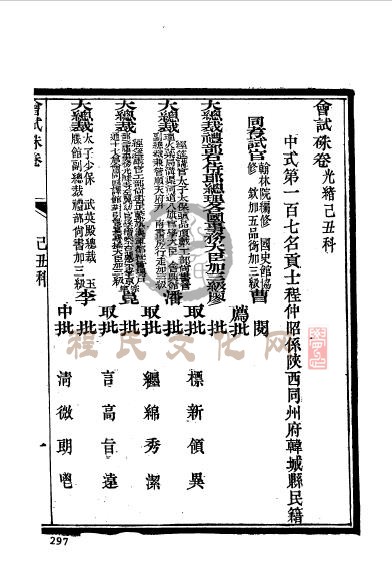 會試硃卷光緒己丑科
中式第一百七名貢士程仲昭係陝西同州府韓城縣民籍
同考試官翰林院編修國史館協修 欽加五品銜加三級曹 閱
薦批
大總裁禮部右侍郎總理各國事務大臣加三級廖
取批 標新領異
大總裁 潘
取批 纏綿秀潔
大總裁 崑
取批 言高旨遠
大總裁太子少保 武英殿總裁 玉牒館副總裁禮部尚書加三級李
中批 清微朗鬯
會試硃卷 己丑科
297
程氏文化网